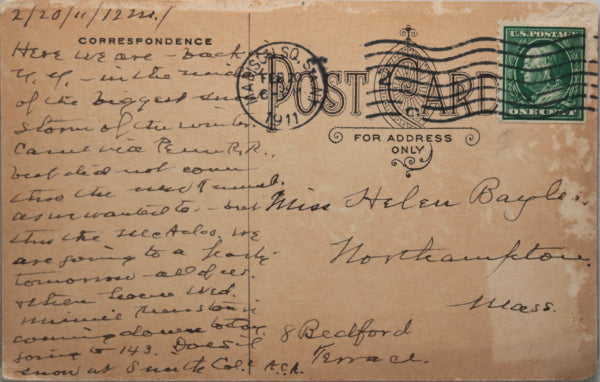 2/20/11/12 M./
CORRESPONDENCE
Here we are - back
N.Y. - in the midst
of the biggest snow
storm of the winter.
Came via Penn R.R.,
but did not come
thro the new tunnel,
as we wanted to - but
thro the McAdoo. We
are going to a party
tomorrow all of us.
& then leave Wed.
Minnie
coming down
going to 143. Does it
snow at Smith Col.? A.C.A.
MADISON SQ. STA. N.Y.
FEB
1911
POST CARD
FOR ADDRESS
ONLY
U.S. POSTAGE
ONE CENT
Miss Helen Bayles.
Northampton.
Mass.
8 Bedford
Terrace.